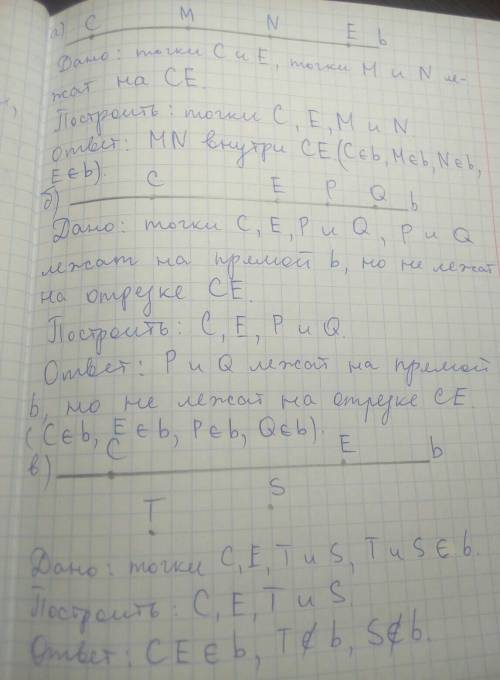 а) C M N E b
Дано: точки C и E, точки M и N ле-
жат на CE.
Построить: точки C, E, M и N
ответ: MN внутри CE.(C∈b, M∈b, N∈b,
E∈b).
б) C E P Q b
Дано: точки C, E, P и Q, P и Q
лежат на прямой b, но не лежат
на отрезке CE.
Построить: C, E, P и Q.
Ответ: P и Q лежат на прямой
b, но не лежат на отрезке CE.
(C∈b, E∈b, P∈b, Q∈b).
в) C E b
T S
Дано: точки C, E, T и S, T и S ∈ b.
Построить: C, E, T и S.
Ответ: CE∈b, T∉b, S∉b.